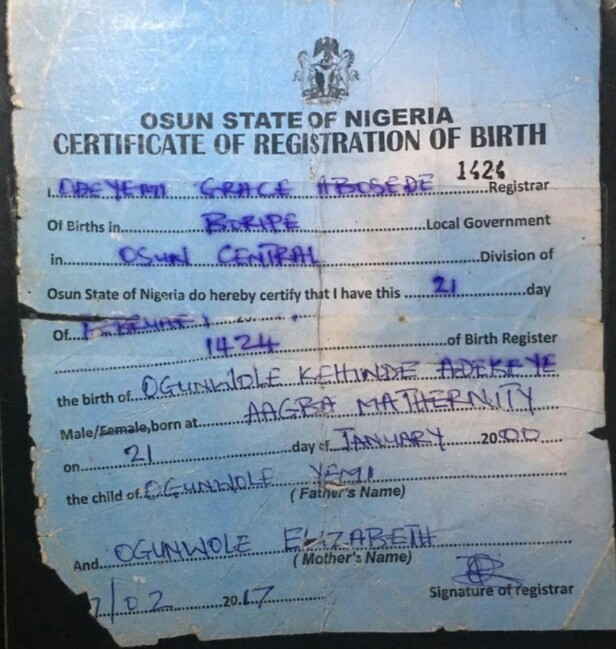 OSUN STATE OF NIGERIA
CERTIFICATE OF REGISTRATION OF BIRTH
1424
I, ODEYEMI GRACE ABOSEDE Registrar
Of Births in BORIPE Local Government
in OSUN CENTRAL Division of
Osun State of Nigeria do hereby certify that I have this 21 day
Of
1424 of Birth Register
the birth of OGUNWOLE KEHINDE ADEKEYE
Male/Female, born at AAGBA MATHERNITY
on 21 day of JANUARY 2000
the child of OGUNWOLE YEMI
(Father's Name)
And OGUNWOLE ELIZABETH
(Mother's Name)
/02 2017
Signature of registrar